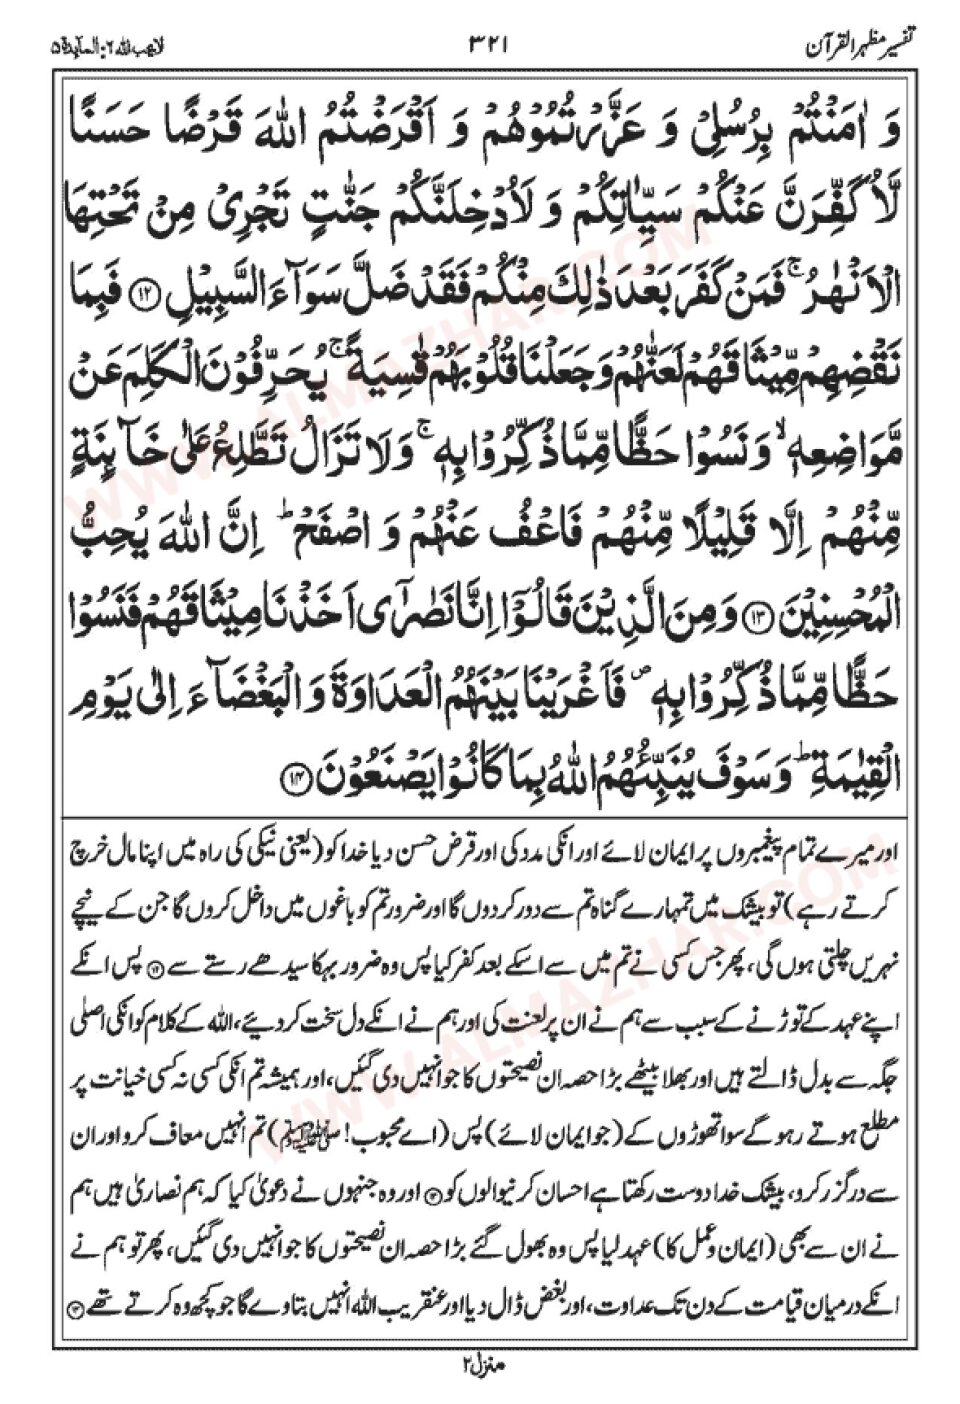 تفسیر مظہر القرآن
۳۲۱
لا یحب اللہ ۶: المآیدۃ ۵
وَ اٰمَنْتُمْ بِرُسُلِیْ وَ عَزَّرْتُمُوْهُمْ وَ اَقْرَضْتُمُ اللّٰهَ قَرْضًا حَسَنًا
لَّاُكَفِّرَنَّ عَنْكُمْ سَیِّاٰتِكُمْ وَ لَاُدْخِلَنَّكُمْ جَنّٰتٍ تَجْرِیْ مِنْ تَحْتِهَا
الْاَنْهٰرُ ۚ فَمَنْ كَفَرَ بَعْدَ ذٰلِكَ مِنْكُمْ فَقَدْ ضَلَّ سَوَآءَ السَّبِیْلِ ﴿۱۲﴾ فَبِمَا
نَقْضِهِمْ مِّیْثَاقَهُمْ لَعَنّٰهُمْ وَ جَعَلْنَا قُلُوْبَهُمْ قٰسِیَةً ۚ یُحَرِّفُوْنَ الْكَلِمَ عَنْ
مَّوَاضِعِهٖ ۙ وَ نَسُوْا حَظًّا مِّمَّا ذُكِّرُوْا بِهٖ ۚ وَ لَا تَزَالُ تَطَّلِعُ عَلٰی خَآىِٕنَةٍ
مِّنْهُمْ اِلَّا قَلِیْلًا مِّنْهُمْ فَاعْفُ عَنْهُمْ وَ اصْفَحْ ؕ اِنَّ اللّٰهَ یُحِبُّ
الْمُحْسِنِیْنَ ﴿۱۳﴾ وَ مِنَ الَّذِیْنَ قَالُوْۤا اِنَّا نَصٰرٰۤی اَخَذْنَا مِیْثَاقَهُمْ فَنَسُوْا
حَظًّا مِّمَّا ذُكِّرُوْا بِهٖ ۪ فَاَغْرَیْنَا بَیْنَهُمُ الْعَدَاوَةَ وَ الْبَغْضَآءَ اِلٰی یَوْمِ
الْقِیٰمَةِ ؕ وَ سَوْفَ یُنَبِّئُهُمُ اللّٰهُ بِمَا كَانُوْا یَصْنَعُوْنَ ﴿۱۴﴾
اور میرے تمام پیغمبروں پر ایمان لائے اور انکی مدد کی اور قرض حسن دیا خدا کو (یعنی نیکی کی راہ میں اپنا مال خرچ
کرتے رہے) تو بیشک میں تمہارے گناہ تم سے دور کردوں گا اور ضرور تم کو باغوں میں داخل کروں گا جن کے نیچے
نہریں چلتی ہوں گی، پھر جس کسی نے تم میں سے اسکے بعد کفر کیا پس وہ ضرور بہکا سیدھے رستے سے ⑫ پس انکے
اپنے عہد کے توڑنے کے سبب سے ہم نے ان پر لعنت کی اور ہم نے انکے دل سخت کردیئے، اللہ کے کلام کو انکی اصلی
جگہ سے بدل ڈالتے ہیں اور بھلا بیٹھے بڑا حصہ ان نصیحتوں کا جو انہیں دی گئیں، اور ہمیشہ تم انکی کسی نہ کسی خیانت پر
مطلع ہوتے رہو گے سوا تھوڑوں کے (جو ایمان لائے) پس (اے محبوب! ﷺ) تم انہیں معاف کرو اور ان
سے درگزر کرو، بیشک خدا دوست رکھتا ہے احسان کرنیوالوں کو ⑬ اور وہ جنہوں نے دعویٰ کیا کہ ہم نصاریٰ ہیں ہم
نے ان سے بھی (ایمان و عمل کا) عہد لیا پس وہ بھول گئے بڑا حصہ ان نصیحتوں کا جو انہیں دی گئیں، پھر تو ہم نے
انکے درمیان قیامت کے دن تک عداوت، اور بغض ڈال دیا اور عنقریب اللہ انہیں بتاوے گا جو کچھ وہ کرتے تھے ⑭
منزل ۲
WWW.ALMAZHAR.COM
WWW.ALMAZHAR.COM